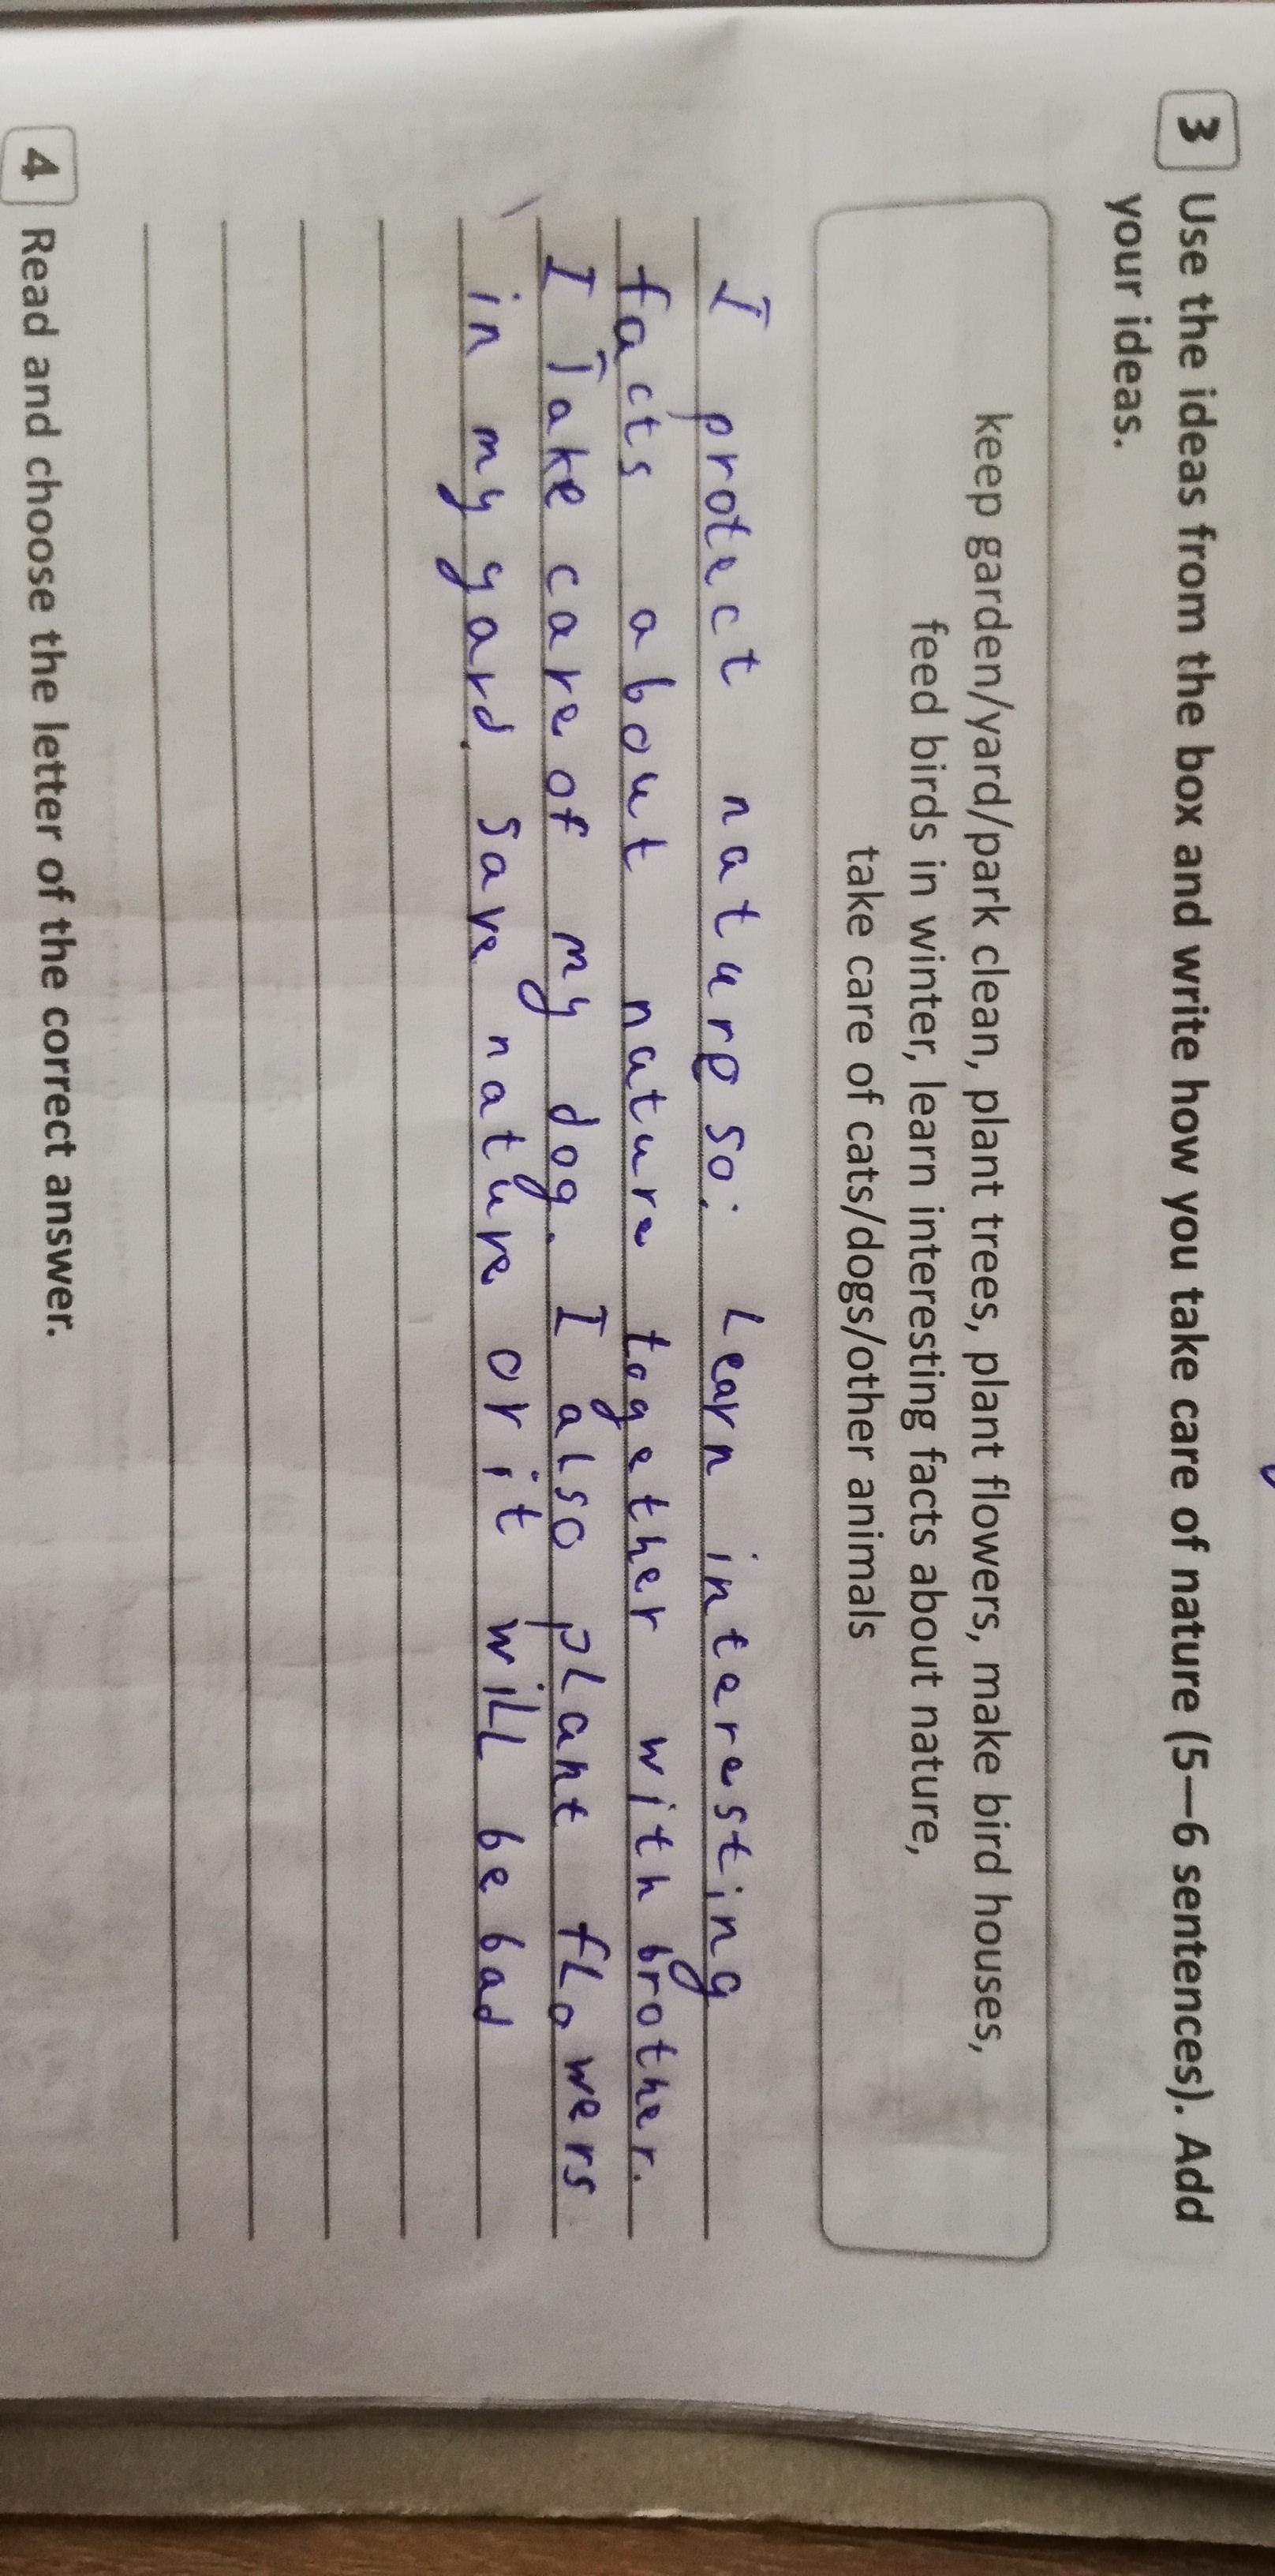 3 Use the ideas from the box and write how you take care of nature (5—6 sentences). Add
your ideas.
keep garden/yard/park clean, plant trees, plant flowers, make bird houses,
feed birds in winter, learn interesting facts about nature,
take care of cats/dogs/other animals
I protect nature so: Learn interesting
facts about nature together with brother.
I Take care of my dog. I also plant flowers
in my yard. Save nature or it will be bad
4 Read and choose the letter of the correct answer.